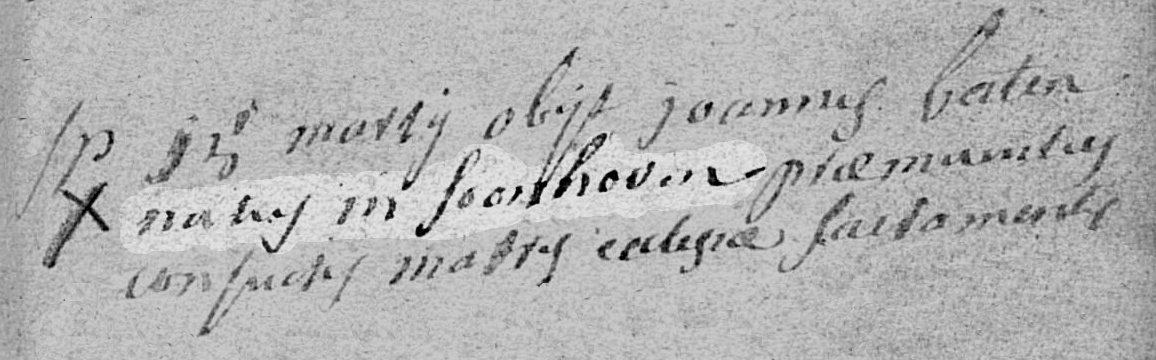 sp 13 martij obijt joannes baten
X natus in soonhoven præmunitus
consuetis matris eclesiæ sacramentis